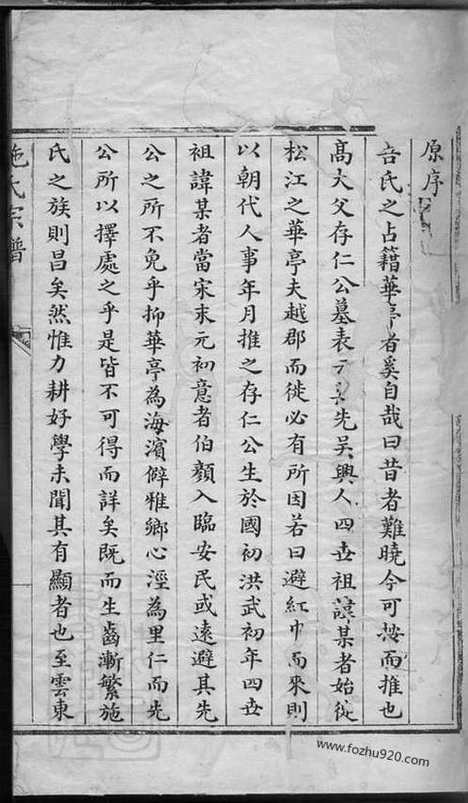 原序
吾氏之占籍華亭者奚自哉曰昔者難曉今可按而推也
高大父存仁公墓表云其先吳興人四世祖諱某者始從
松江之華亭夫越郡而徙必有所因若曰避紅巾而來則
以朝代人事年月推之存仁公生於國初洪武初年四世
祖諱某者當宋末元初意者伯顏入臨安民或遠避其先
公之所不免乎抑華亭為海濱僻雅鄉心涇為里仁而先
公所以擇處之乎是皆不可得而詳矣既而生齒漸繁施
氏之族則昌矣然惟力耕好學未聞其有顯者也至雲東
施氏宗譜
www.fozhu920.com